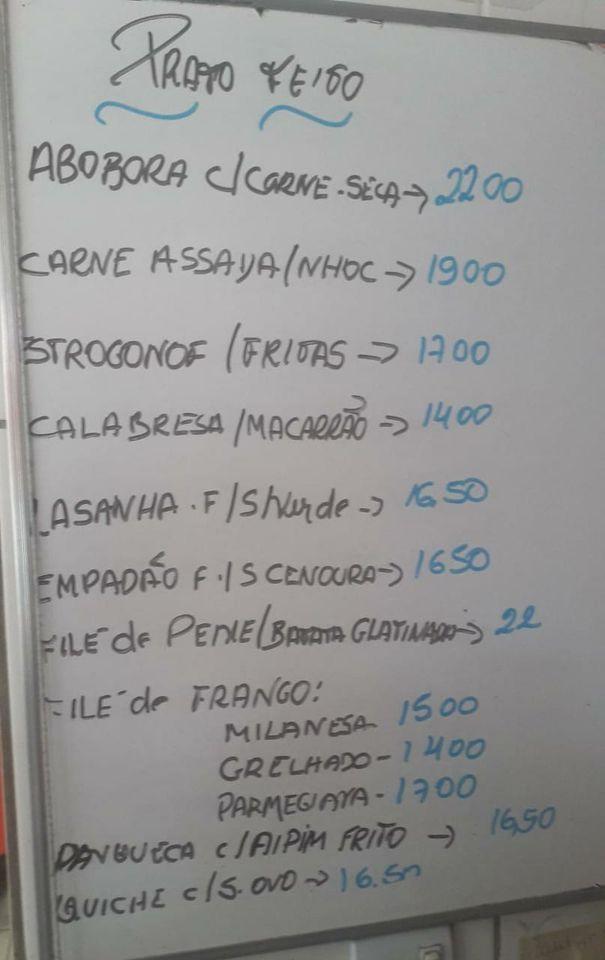 PRATO FEITO
ABOBORA C/CARNE-SECA→ 2200
CARNE ASSADA/NHOC → 1900
ESTROGONOF /FRITAS → 1700
CALABRESA/MACARRÃO → 1400
LASANHA.F/S/Verde → 16,50
EMPADÃO F./S CENOURA→ 1650
FILÉ de PEIXE/BATATA GLATINADA→ 22
FILÉ de FRANGO:
MILANESA- 1500
GRELHADO- 1400
PARMEGIANA- 1700
PANQUECA C/AIPIM FRITO → 16,50
QUICHE C/S.OVO → 16.50